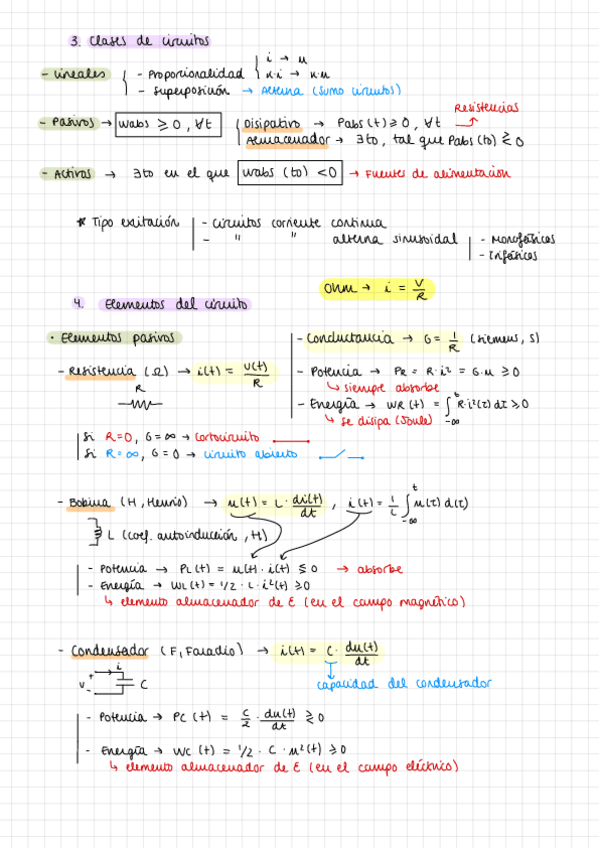 3. Clases de circuitos
- Lineales
- Proporcionalidad
i → u
k·i → k·u
- Superposición → Alterna (sumo circuitos)
- Pasivos → Wabs ≥ 0, ∀t
Disipativo → Pabs(t) ≥ 0, ∀t → Resistencias
Almacenador → ∃to, tal que Pabs(to) ≷ 0
- Activos → ∃to en el que Wabs(to) < 0 → Fuentes de alimentación
* Tipo exitación
- Circuitos corriente continua
- " " alterna sinusoidal
- Monofásicos
- Trifásicos
Ohm → i = V/R
4. Elementos del circuito
· Elementos pasivos
- Resistencia (Ω) → i(t) = U(t)/R
R
- Conductancia → G = 1/R (siemens, S)
- Potencia → PR = R·i² = G·u ≥ 0
↳ siempre absorbe
- Energía → WR(t) = ∫_{-∞}^{t} R·i²(τ) dτ ≥ 0
↳ se disipa (Joule)
Si R=0, G=∞ → Cortocircuito
Si R=∞, G=0 → circuito abierto
- Bobina (H, Henrio) → u(t) = L · di(t)/dt , i(t) = 1/L ∫_{-∞}^{t} u(τ) d(τ)
L (coef. autoinducción, H)
- Potencia → PL(t) = u(t) · i(t) ≶ 0 → absorbe
- Energía → WL(t) = 1/2 · L · i²(t) ≥ 0
↳ elemento almacenador de E (en el campo magnético)
- Condensador (F, Faradio) → i(t) = C · du(t)/dt
capacidad del condensador
i
+
V
-
C
- Potencia → PC(t) = C/2 · du(t)/dt ≷ 0
- Energía → WC(t) = 1/2 · C · u²(t) ≥ 0
↳ elemento almacenador de E (en el campo eléctrico)